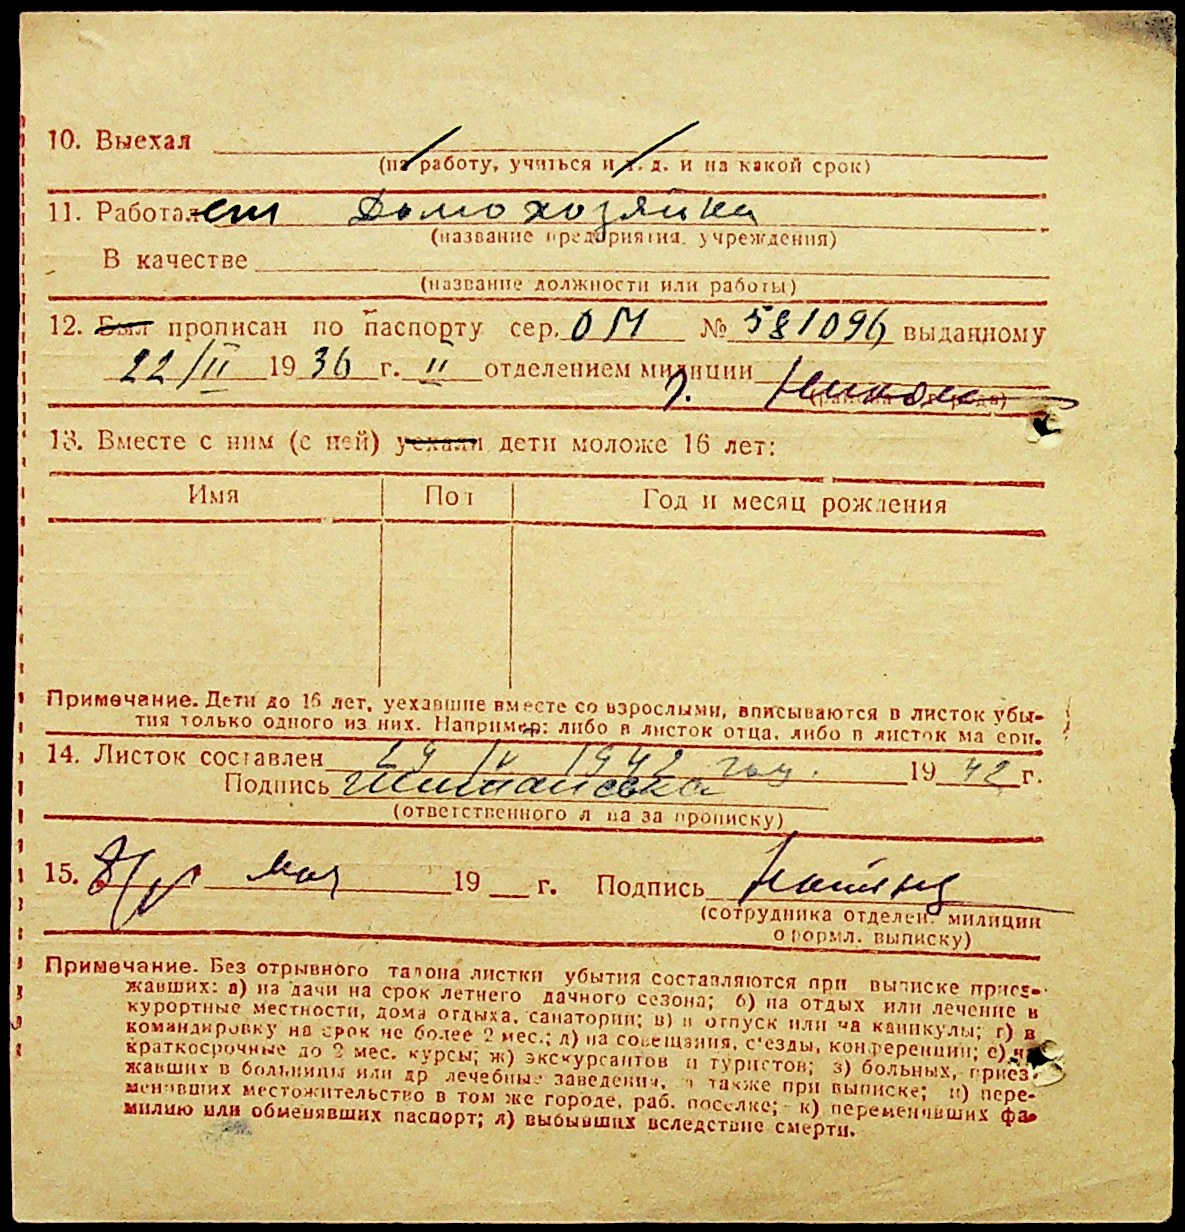 10. Выехал
(на работу, учиться и т. д. и на какой срок)
11. Работает Домохозяйка
(название предприятия, учреждения)
В качестве
(название должности или работы)
12. Был прописан по паспорту сер. ОМ № 581096 выданному
22/II 1936 г. II отделением милиции
г.
13. Вместе с ним (с ней) уехали дети моложе 16 лет:
Имя Пол Год и месяц рождения
Примечание. Дети до 16 лет, уехавшие вместе со взрослыми, вписываются в листок убы-
тия только одного из них. Например: либо в листок отца, либо в листок матери.
14. Листок составлен 29 IV 1942 год. 1942 г.
Подпись
(ответственного лица за прописку)
15. 8/V мая 19 г. Подпись
(сотрудника отделен. милиции
оформл. выписку)
Примечание. Без отрывного талона листки убытия составляются при выписке приез-
жавших: а) на дачи на срок летнего дачного сезона; б) на отдых или лечение в
курортные местности, дома отдыха, санатории; в) в отпуск или на каникулы; г) в
командировку на срок не более 2 мес.; д) на совещания, с'езды, конференции; е) на
краткосрочные до 2 мес. курсы; ж) экскурсантов и туристов; з) больных, приез-
жавших в больницы или др лечебные заведения, а также при выписке; и) пере-
менивших местожительство в том же городе, раб. поселке; к) переменивших фа-
милию или обменявших паспорт; л) выбывших вследствие смерти.